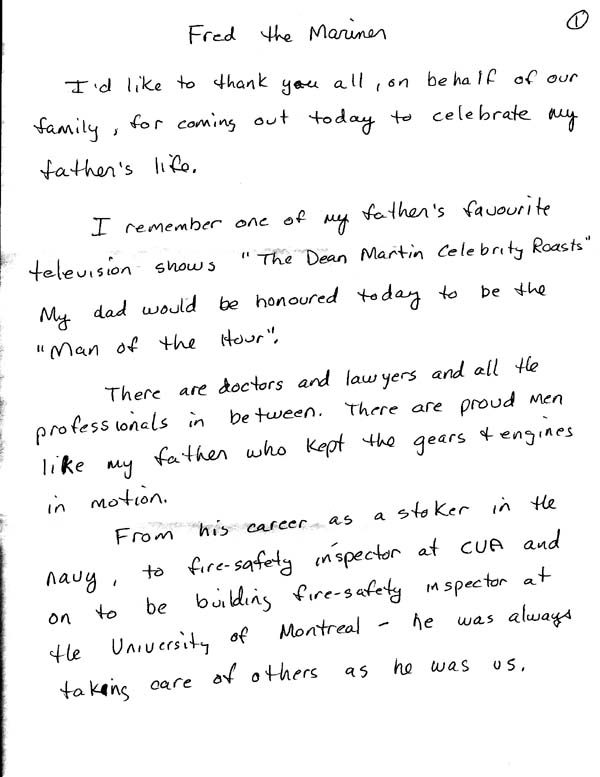 ①
Fred the Mariner
I'd like to thank you all, on behalf of our
family, for coming out today to celebrate my
father's life.
I remember one of my father's favourite
television shows "The Dean Martin Celebrity Roasts"
My dad would be honoured today to be the
"Man of the Hour".
There are doctors and lawyers and all the
professionals in between. There are proud men
like my father who kept the gears & engines
in motion.
From his career as a stoker in the
navy, to fire-safety inspector at CUA and
on to be building fire-safety inspector at
the University of Montreal - he was always
taking care of others as he was us.